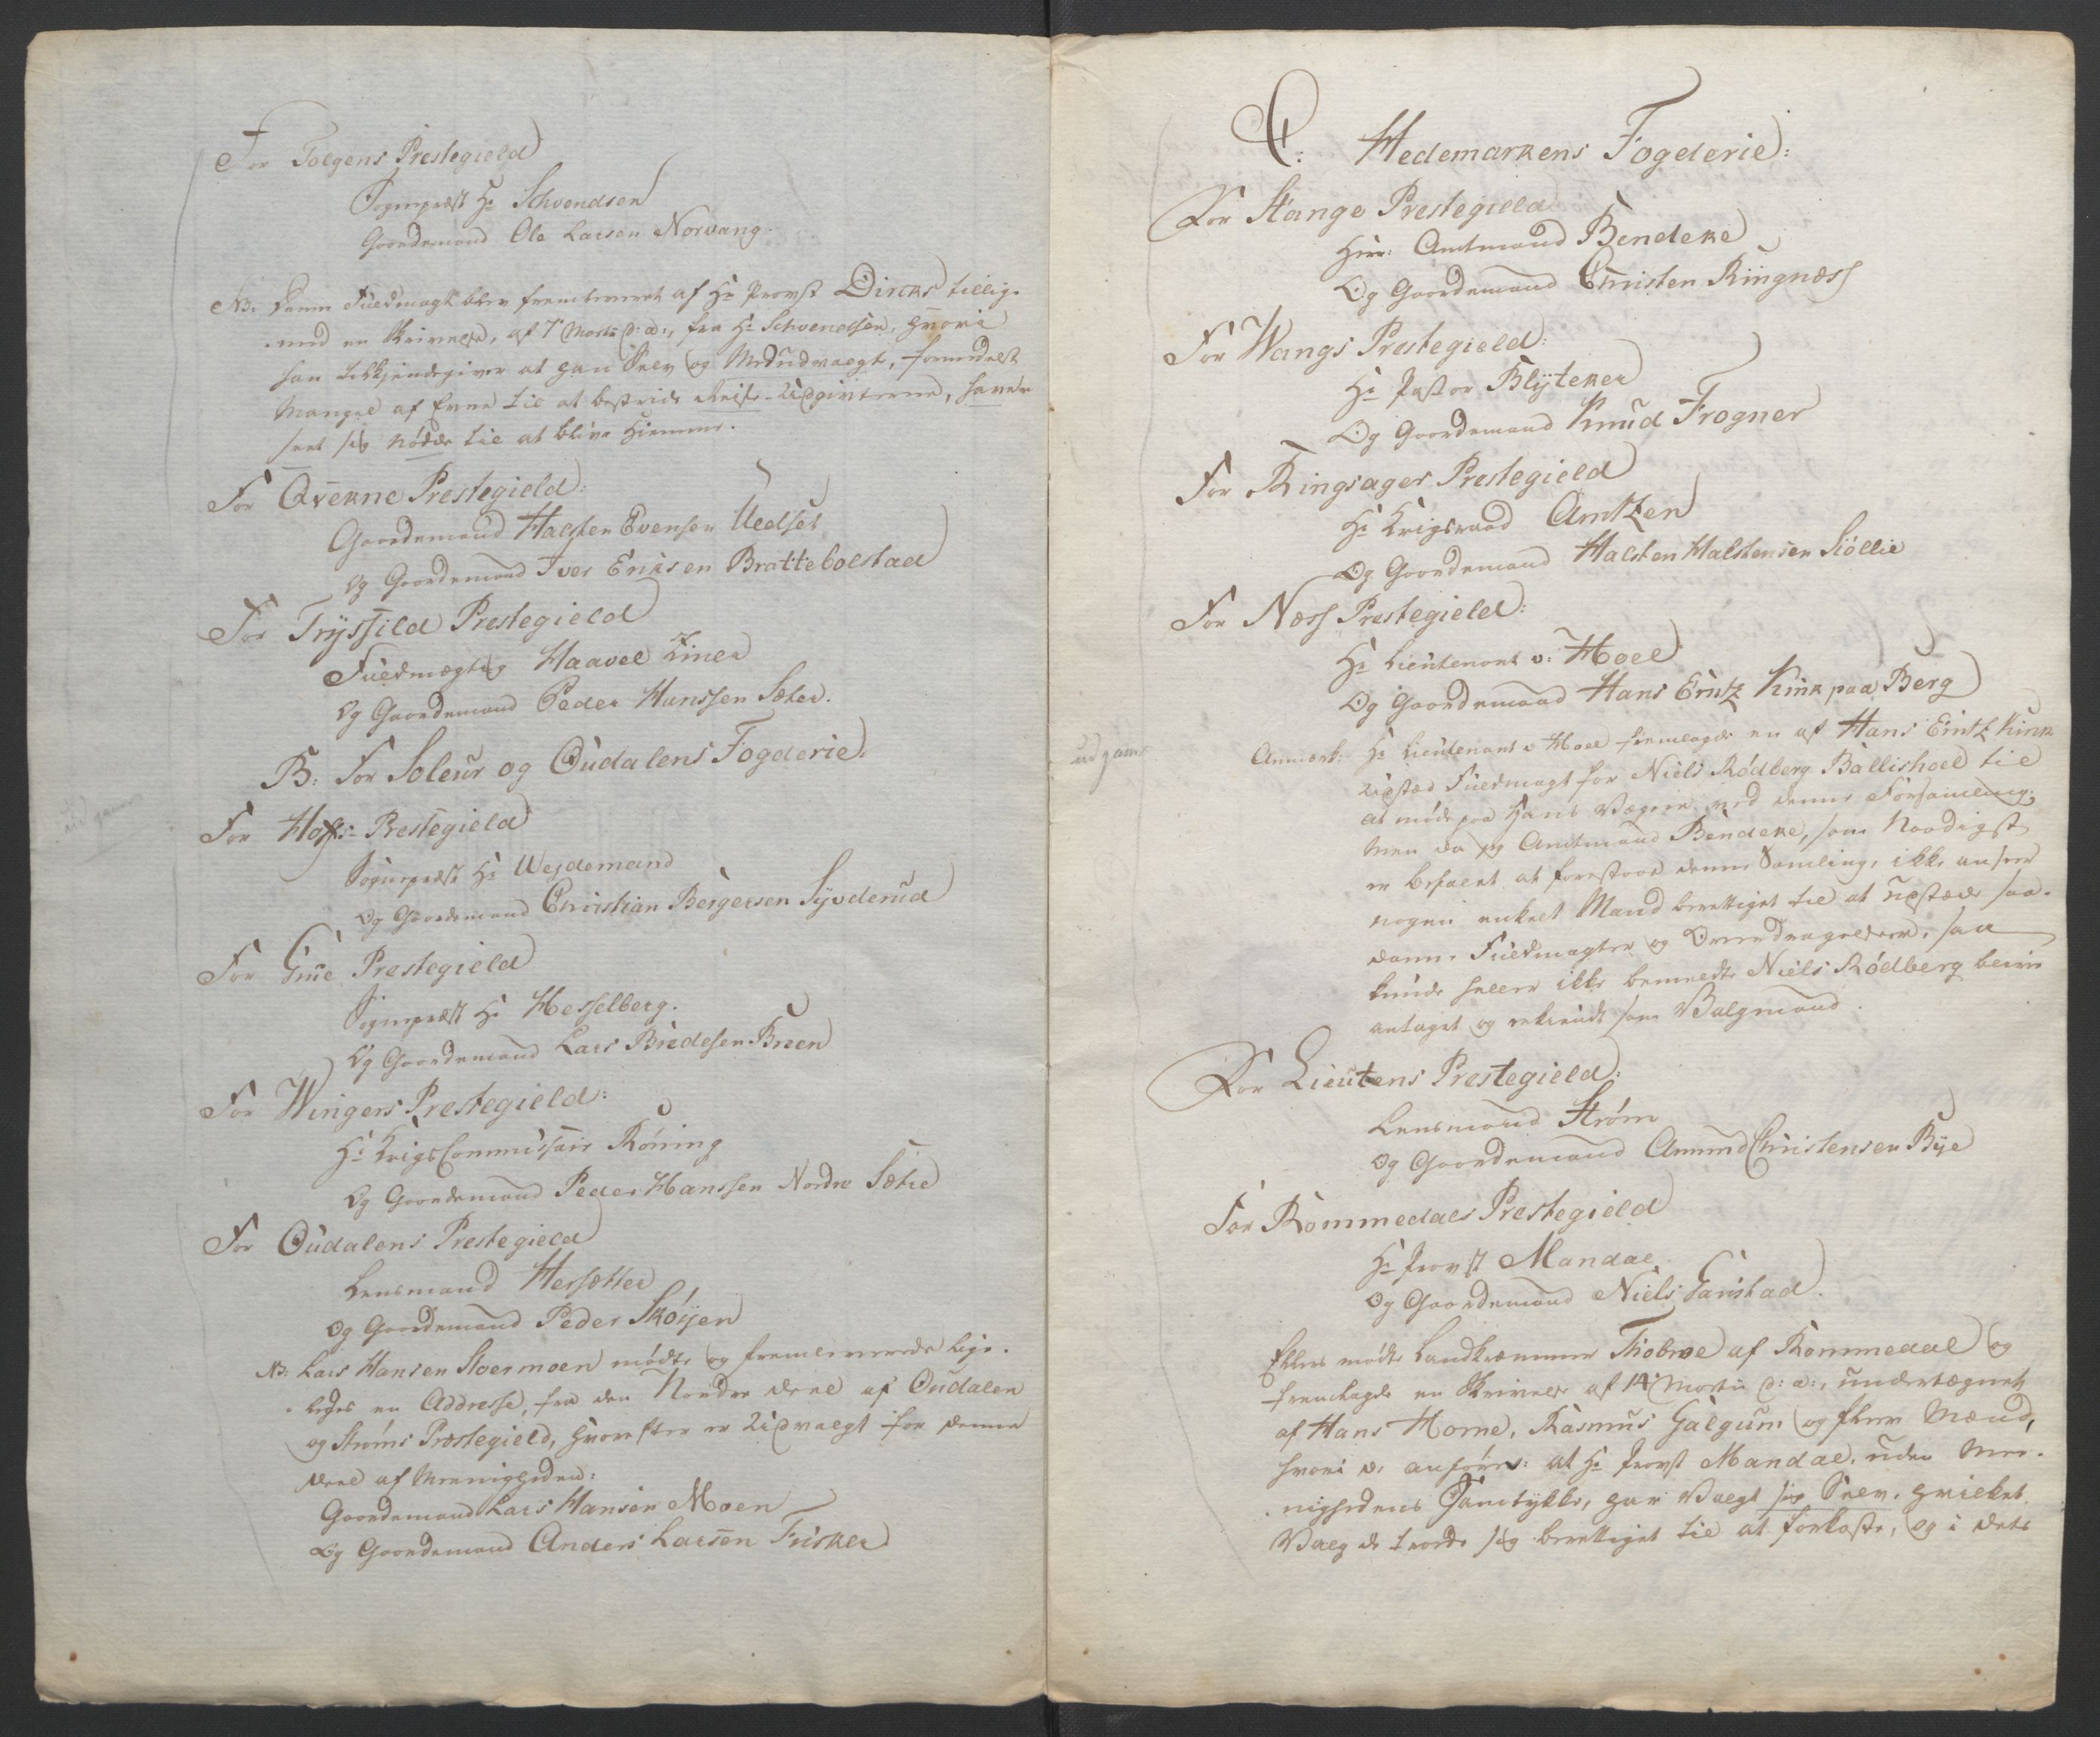 For Tolgens Prestegield
Sognepræst Hr Schvendsen
Gaardemand Ole Larsen Norvang.
NB. Denne Fuldmagt blev fremleveret af Hr Provst Dircks tillig-
med en Skrivelse, af 7 Martii d: a:, fra Hr Schvendsen, hvori
han tilkjendegiver at han Selv og Medudvalgt, formedelst
Mangel af Evne til at bestride Reise-Udgivterne, haver
seet sig nødde til at blive Hiemme.
For Qvekne Prestegield:
Gaardemand Halsten Evensen Uelset
Og Gaardemand Iver Ericsen Brattebolstad
For Tryssild Prestegield
Fuldmægtig Haavel Liner
Og Gaardemand Peder Hanssen Sæter.
B: For Soleur og Oudalens Fogderie.
For Hofs- Prestegield
Sognepræst Hr Wejdemand
Og Gaardemand Christian Børgersen Syvderud
For Grue Prestegield
Sognepræst Hr Hesselberg.
Og Gaardemand Lars Bredesen Breen
For Wingers Prestegield:
Hr Krigs Commissair Røning
Og Gaardemand Peder Hanssen Nordre Sætre
For Oudalens Prestegield
Lensmand Hersætter
Og Gaardemand Peder Skøyen
NB: Lars Hansen Stoermoen mødte og fremleverede lige-
ledes en Addresse, fra den Nordre Deel af Oudalen
og Strøms Præstegield, hvorefter er Udvalgt for denne
Deel af Menigheden:
Gaardemand Lars Hansen Moen
Og Gaardemand Anders Larsen Fisker
C: Hedemarkens Fogderie:
For Stange Prestegield
Herr: Amtmand Bendeke
Og Gaardemand Christen Ringnæss
For Wangs Prestegield:
Hr Pastor Blyteker
Og Gaardemand Knud Frogner
For Ringsager Prestegield
Hr Krigsraad Arntzen
Og Gaardemand Halsten Halstensen Siøllie
For Næss Prestegield:
Hr Lieutenant v: Hoel
Og Gaardemand Hans Erntz Kink paa Berg
Anmærk: Hr Lieutenant v Hoel fremlagde en af Hans Erntz Kink
udstæd Fuldmagt for Niels Rødberg Ballishoel til
at møde paa Hans Vegne ved denne Forsamling;
Men da jeg Amtmand Bendeke, som Naadigst
er befalet at forestaae denne Samling, ikke anseer
nogen enkelt Mand berettiget til at udstæde saa-
danne Fuldmagter og Overdragelser, saa
kunde heller ikke bemeldte Niels Rødberg blive
antaget og erkiendt som Valgmand.
For Lieutens Prestegield:
Lensmand Strøm
Og Gaardemand Amund Christensen Bye
For Rommedals Prestegield
Hr Provst Mandal
Og Gaardemand Niels Gaustad.
Ellers mødte Landkræmmer Thobroe af Rommedal og
fremlagde en Skrivelse af 14 Martii d: a:, undertegnet
af Hans Horne, Rasmus Galgum og flere Mænd,
hvori de anfører: at Hr Provst Mandal, uden Me-
nighedens Samtykke, har Valgt sig Selv, hvilket
Valg de troede sig berettiget til at forkaste, og i dets